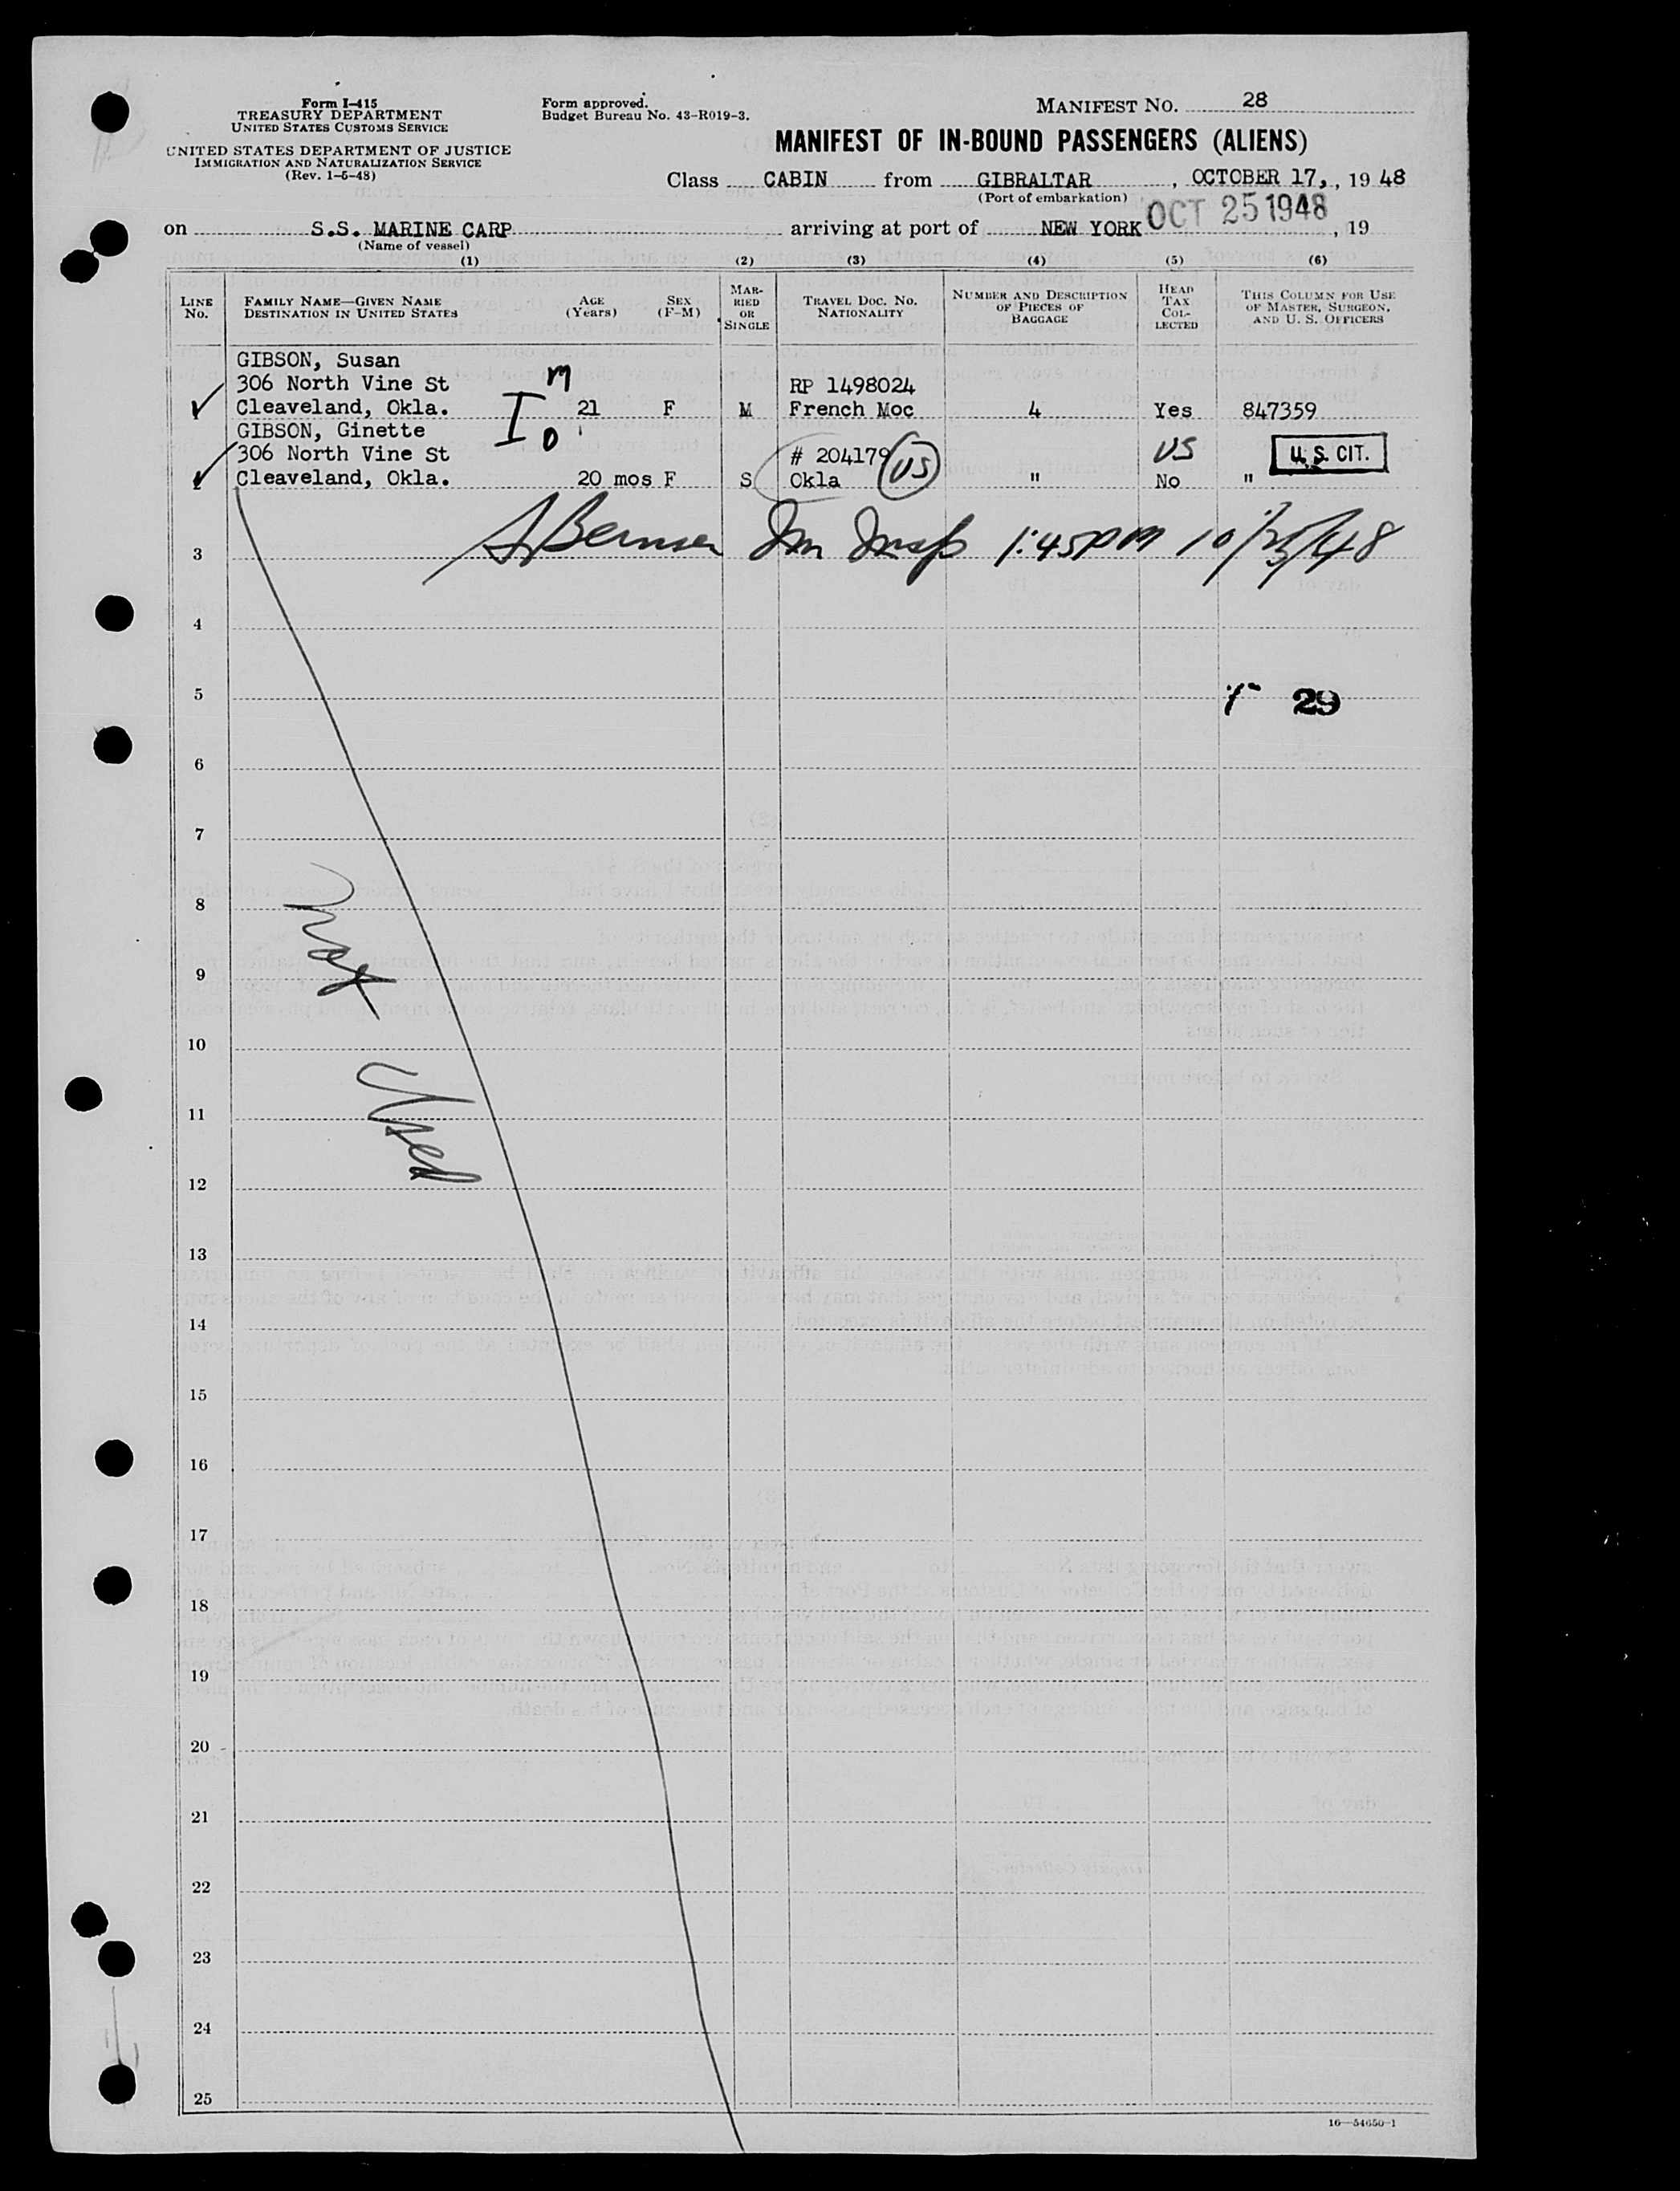 Form I-415
TREASURY DEPARTMENT
UNITED STATES CUSTOMS SERVICE
UNITED STATES DEPARTMENT OF JUSTICE
IMMIGRATION AND NATURALIZATION SERVICE
(Rev. 1-5-48)
Form approved.
Budget Bureau No. 43-R019-3.
MANIFEST NO. 28
MANIFEST OF IN-BOUND PASSENGERS (ALIENS)
Class CABIN from GIBRALTAR, OCTOBER 17,, 19 48
(Port of embarkation)
on S.S. MARINE CARP arriving at port of NEW YORK OCT 25 1948, 19
(Name of vessel)
(1) (2) (3) (4) (5) (6)
LINE No. FAMILY NAME—GIVEN NAME DESTINATION IN UNITED STATES AGE (Years) SEX (F-M) MARRIED OR SINGLE TRAVEL DOC. NO. NATIONALITY NUMBER AND DESCRIPTION OF PIECES OF BAGGAGE HEAD TAX COLLECTED THIS COLUMN FOR USE OF MASTER, SURGEON, AND U. S. OFFICERS
GIBSON, Susan
306 North Vine St m RP 1498024
Cleaveland, Okla. I 21 F M French Moc 4 Yes 847359
GIBSON, Ginette D
306 North Vine St # 204179 US US U. S. CIT.
Cleaveland, Okla. 20 mos F S Okla " No "
3 Im Insp 1:45PM 10/25/48
4
5 29
6
7
8
9
10
11
12
Not Used
13
14
15
16
17
18
19
20
21
22
23
24
25
16—54650-1